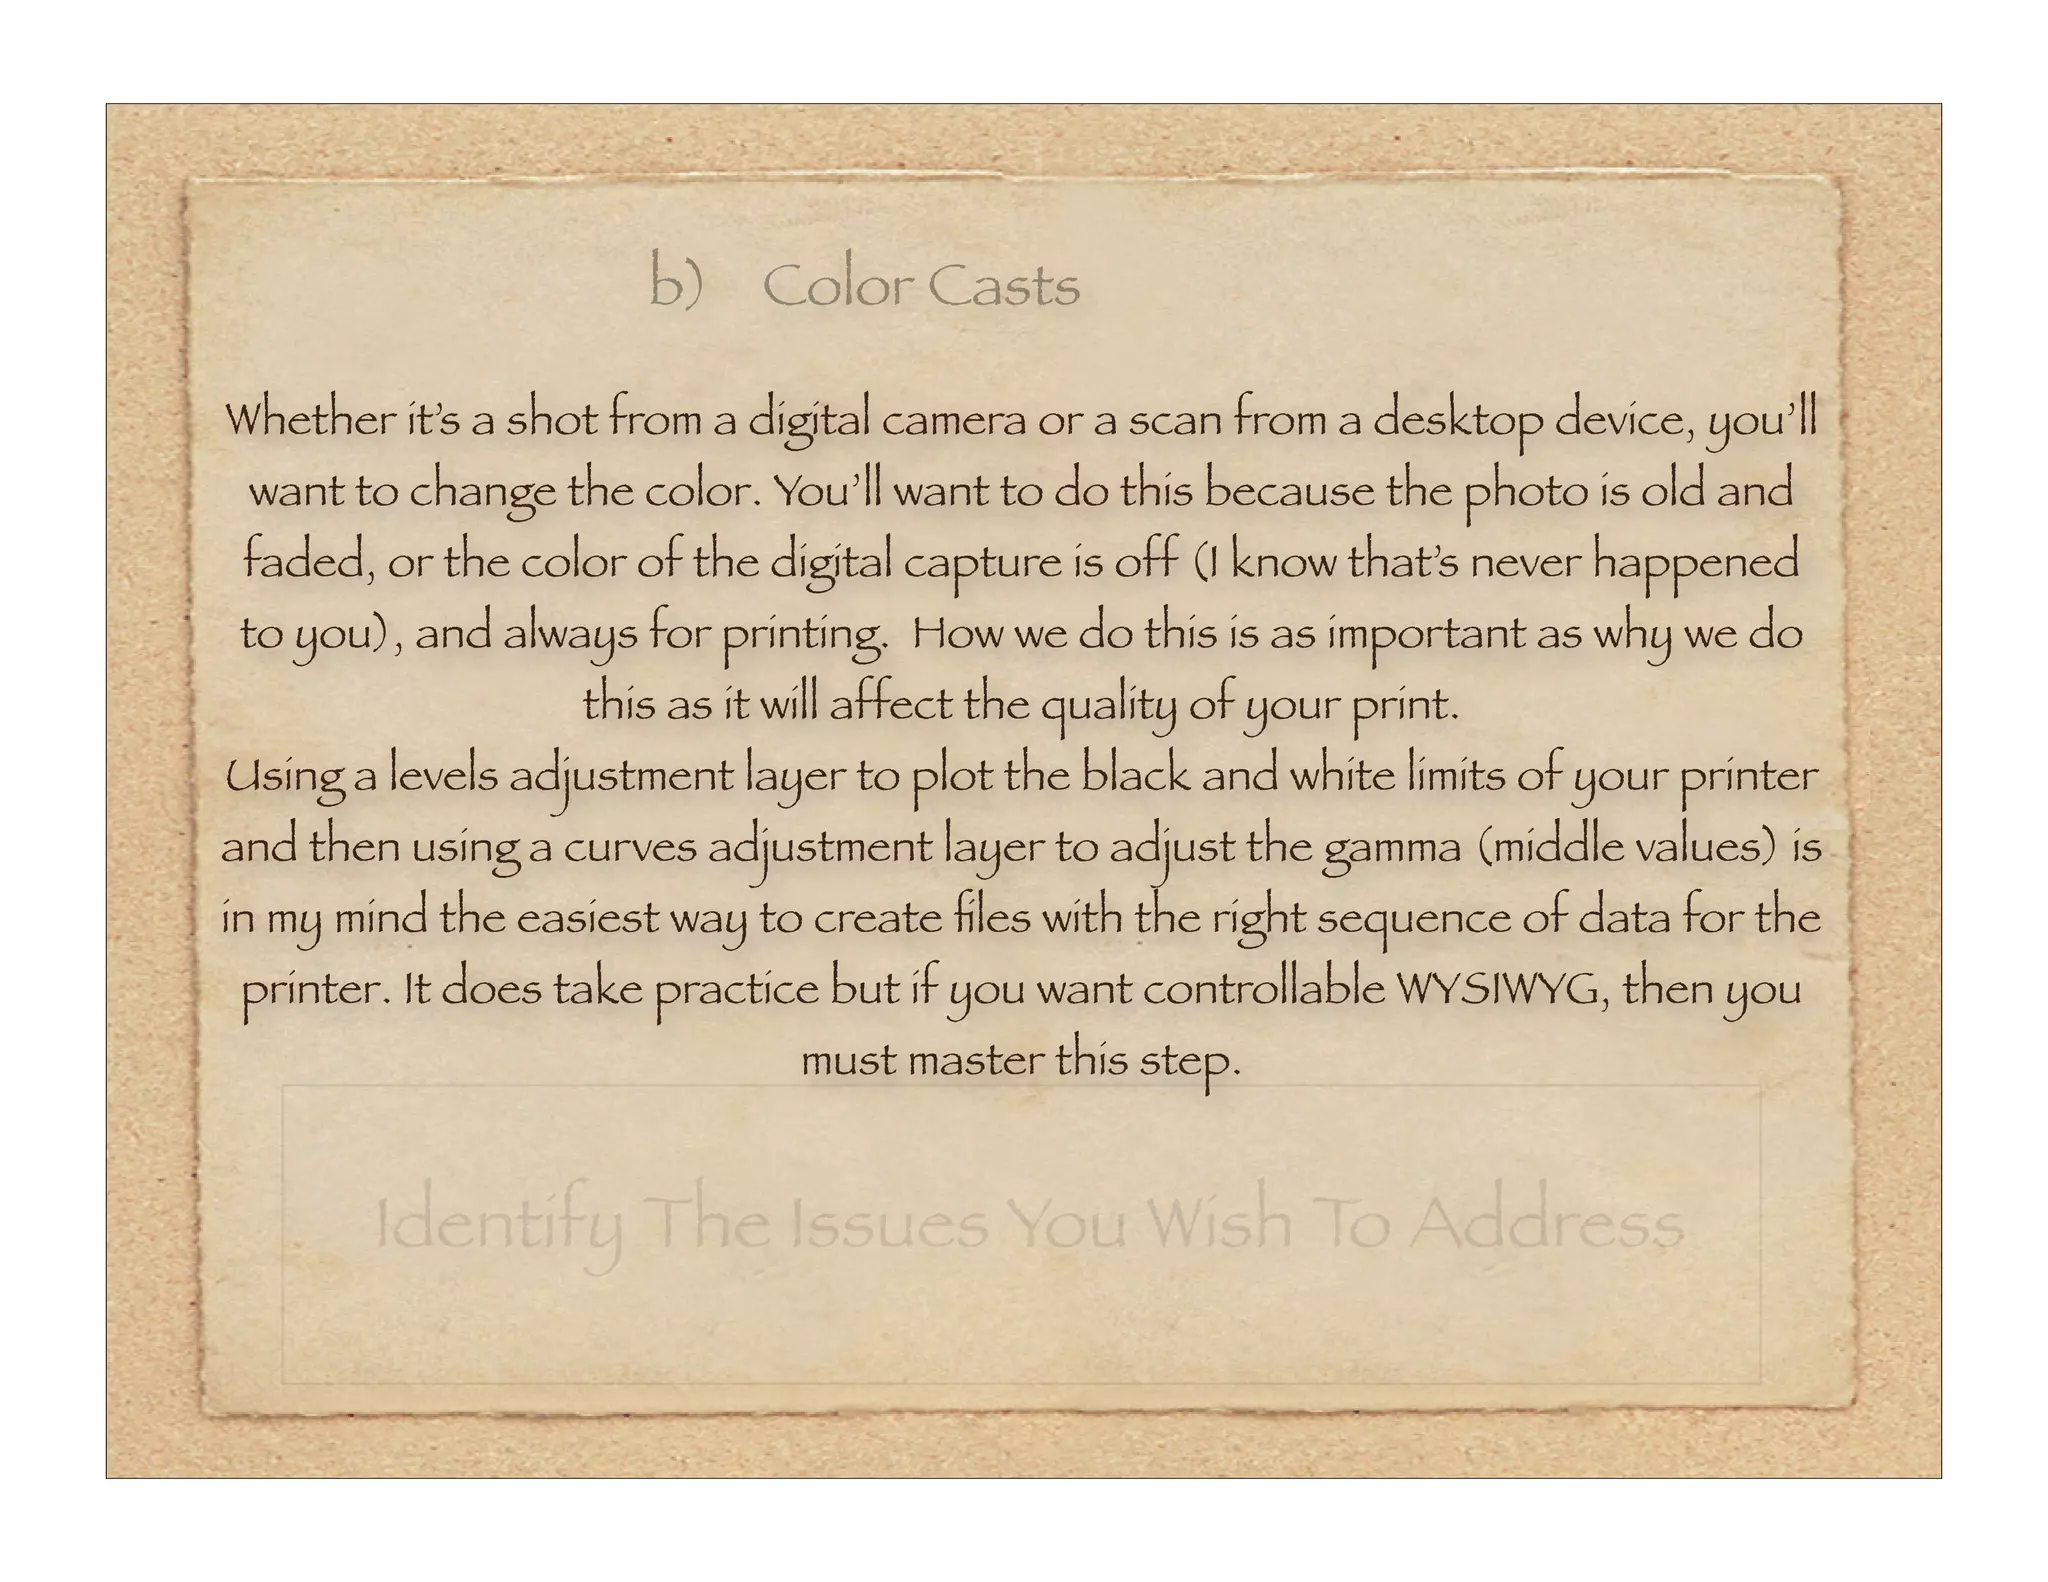 b) Color Casts
Whether it’s a shot from a digital camera or a scan from a desktop device, you’ll
want to change the color. You’ll want to do this because the photo is old and
faded, or the color of the digital capture is off (I know that’s never happened
to you), and always for printing.  How we do this is as important as why we do
this as it will affect the quality of your print.
Using a levels adjustment layer to plot the black and white limits of your printer
and then using a curves adjustment layer to adjust the gamma (middle values) is
in my mind the easiest way to create files with the right sequence of data for the
printer. It does take practice but if you want controllable WYSIWYG, then you
must master this step.
Identify The Issues You Wish To Address